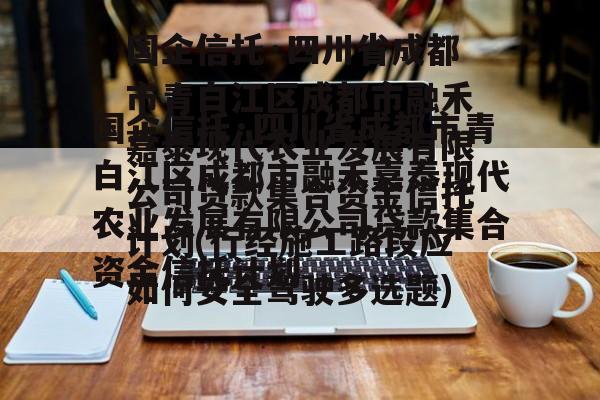 国企信托·四川省成都
市青白江区成都市融禾
嘉泰现代农业发展有限
公司贷款集合资金信托
计划(行经施工路段应
如何安全驾驶多选题)
国企信托·四川省成都市青
白江区成都市融禾嘉泰现代
农业发展有限公司贷款集合
资金信托计划